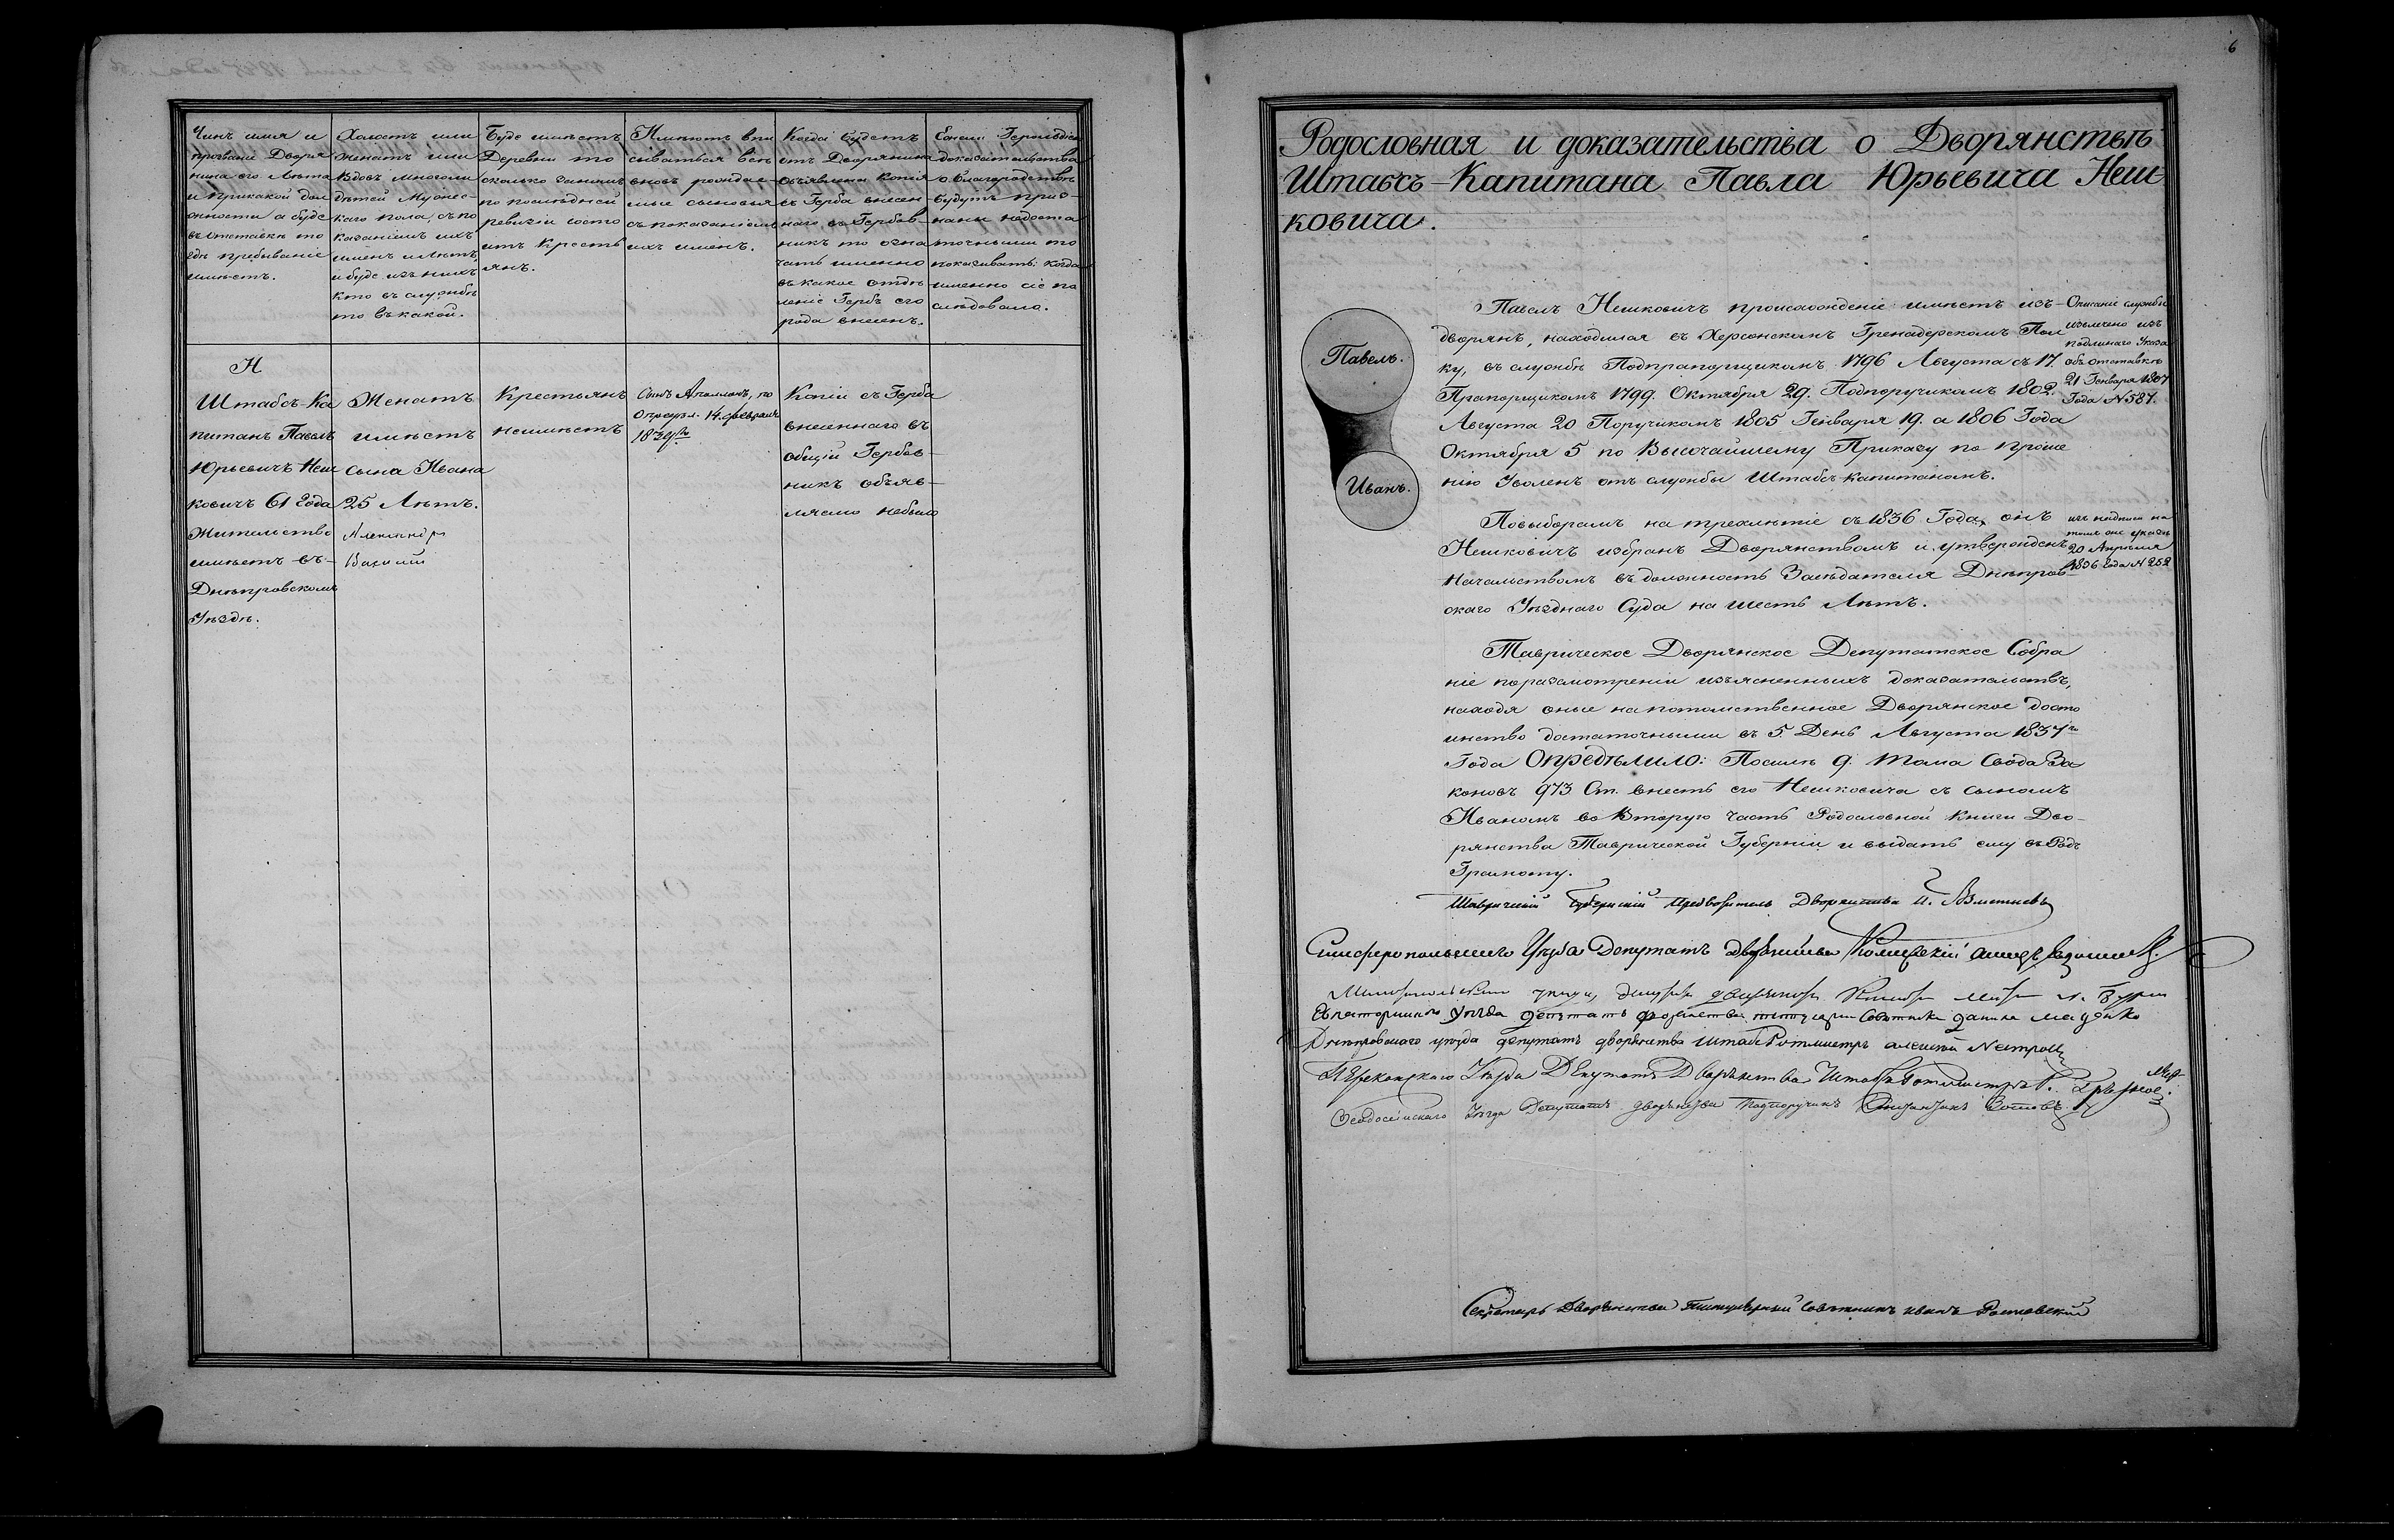 Чинъ имя и
прозваніе Дворя
нина его Лѣта
и при какой дол
жности а буде
въ отставкѣ то
гдѣ пребываніе
имѣетъ.
Холостъ или
женатъ или
Вдовъ много ли
дѣтей Мужес-
каго пола, съ по
казаніемъ ихъ
именъ и Лѣтъ,
и буде изъ нихъ
кто въ службѣ
то въ какой.
Буде имѣетъ
Деревни то
сколько за нимъ
по послѣдней
ревизіи состо
итъ Кресть
янъ.
Имѣютъ впи
сываться всѣ
вновь рождае-
мые сыновья
съ показаніемъ
ихъ именъ.
Когда будетъ
отъ Дворянина
объявлена Копія
съ Герба внесен-
наго въ Гербов-
никъ то озна
чать именно
въ какое отдѣ
леніе Гербъ его
рода внесенъ.
Ежели Герольдіею
доказательства
о благородствѣ
будутъ приз-
наны недоста
точными то
показывать: когда
именно сіе по
слѣдовало.
Н
Штабсъ-Ка
питанъ Павелъ
Юрьевичъ Неш
ковичъ 61 Года
Жительство
имѣетъ въ-
Днѣпровскомъ
Уѣздѣ.
Женатъ
имѣетъ
сына Ивана
25 Лѣтъ.
Александръ
Василій
Крестьянъ
неимѣетъ
Сынъ Аполлонъ, по
Опредѣл. 14. февраля
Копіи съ Герба
внесеннаго въ
общій Гербов-
никъ объяв-
ляемо небыло
6
Родословная и доказательства о Дворянствѣ
Штабсъ-Капитана Павла Юрьевича Неш-
ковича.
Павелъ.
Иванъ.
Павелъ Нешковичъ происхожденіе имѣетъ изъ-
дворянъ, находился въ Херсонскомъ Гренадерскомъ Пол
ку, въ службѣ Подпрапорщикомъ 1796 Августа съ 17.
Прапорщикомъ 1799. Октября 29. Подпоручикомъ 1802.
Августа 20 Поручикомъ 1805 Генваря 19. а 1806 Года
Октября 5 по Высочайшему Приказу по проше
нію Уволенъ отъ службы Штабсъ-капитаномъ.
Описаніе службы
извлечено изъ
подлинаго Указа
объ отставкѣ
21 Генваря 1807
Года № 587.
По выборамъ на трехлѣтіе съ 1836 Года, онъ
Нешковичъ избранъ Дворянствомъ и утвержденъ
Начальствомъ въ должность Засѣдателя Днѣпров-
скаго Уѣзднаго Суда на шесть Лѣтъ.
изъ надписи на
томъ же указѣ
20 Апрѣля
1836 Года № 252
Таврическое Дворянское Депутатское Собра
ніе по разсмотреніи изъясненныхъ доказательствъ,
находя оные на потомственное Дворянское досто
инство достаточными въ 5. День Августа 1837го
Года Опредѣлило: По силѣ 9. тома Свода За
коновъ 973 Ст. внесть его Нешковича съ сыномъ
Иваномъ во Вторую часть Родословной книги Дво-
рянства Таврической Губерніи и выдать ему въ Родъ
Грамоту.
Таврическій Губернскій предводитель Дворянства
Симферопольскаго Уѣзда Депутатъ дворянства
уѣзда, депутатъ дворянства
Евпаторійскаго Уѣзда депутатъ дворянства титулярн совѣтникъ
Днѣпровскаго уѣзда депутатъ дворянства штабъ Ротмистръ алексѣй
Перекопскаго Уѣзда Депутатъ Дворянства Штабсъ Ротмистръ
Ѳеодосійскаго Уѣзда Депутатъ дворянства Подпоручикъ
Секретарь Дворянства титулярный совѣтникъ иванъ